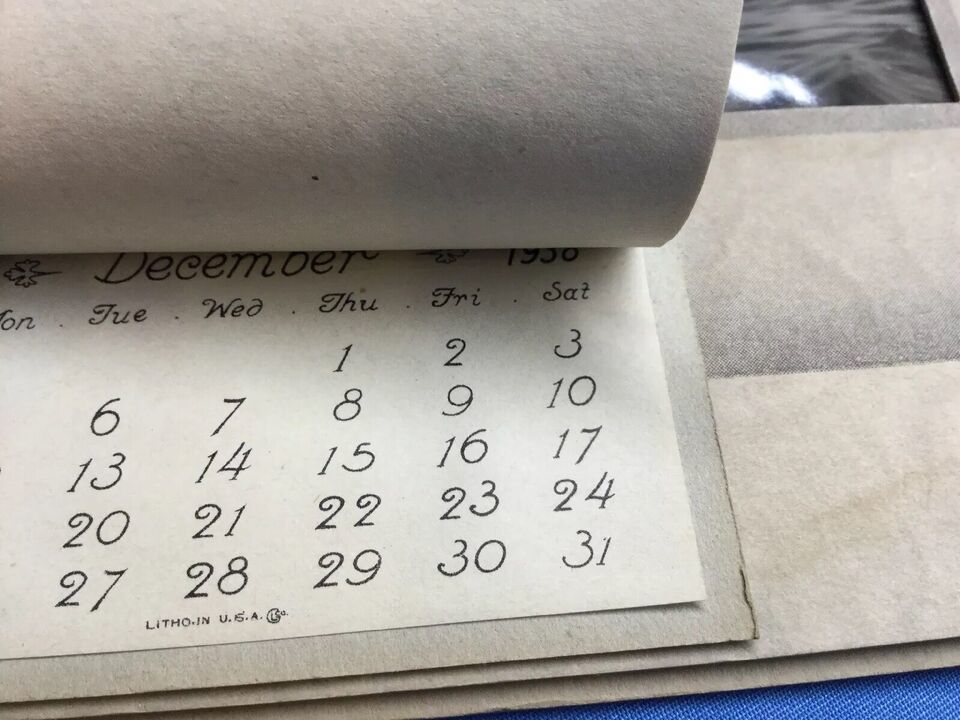 December 1938
Mon . Tue . Wed . Thu . Fri . Sat
1 2 3
6 7 8 9 10
13 14 15 16 17
20 21 22 23 24
27 28 29 30 31
LITHO. IN U.S.A.